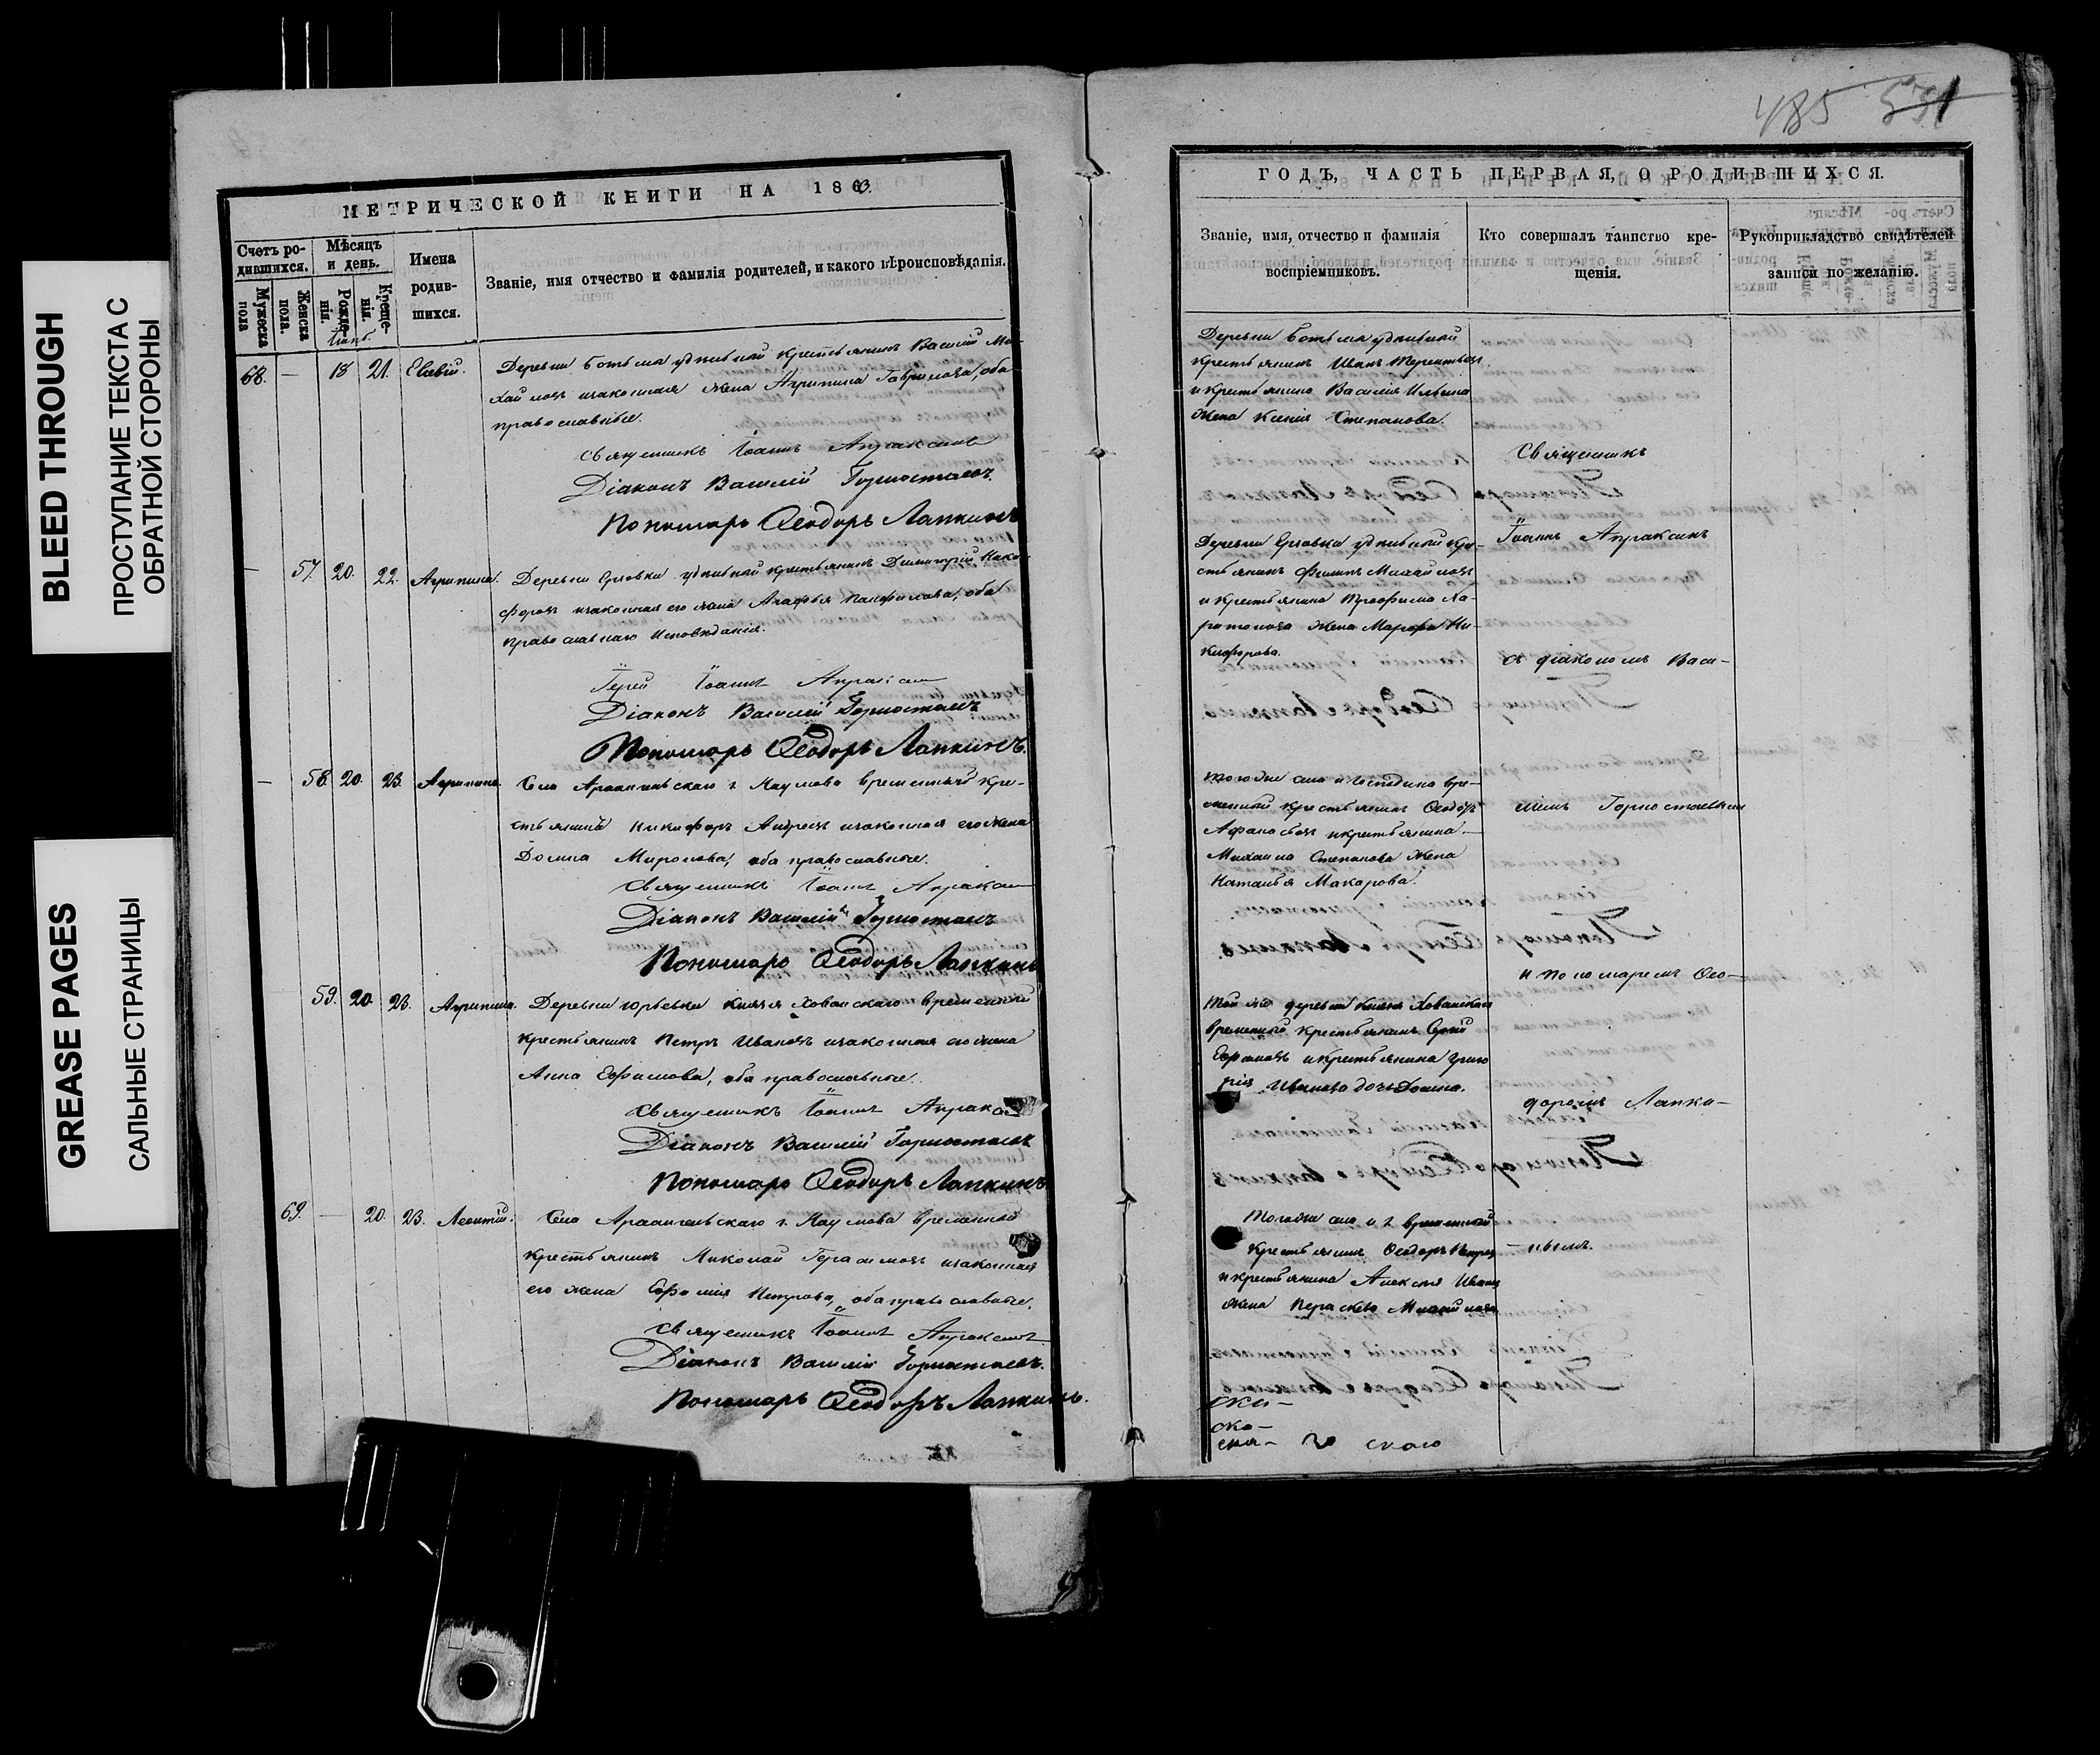 BLEED THROUGH
ПРОСТУПАНИЕ ТЕКСТА С
ОБРАТНОЙ СТОРОНЫ
GREASE PAGES
САЛЬНЫЕ СТРАНИЦЫ
МЕТРИЧЕСКОЙ КНИГИ НА 1863
Счетъ ро-
дившихся.
Мѣсяцъ
и день.
Имена
родив-
шихся.
Званіе, имя отчество и фамилія родителей, и какого вѣроисповѣданія.
Мужеска
пола
Женска
пола.
Рожде-
нія.
Креще-
нія.
68. — 18 21.
Деревни Ботьма удѣльной крестьянинъ Василій Ми-
хайловъ изаконная жена Агрипина Гаврилова, оба
православные.
Священникъ Іоаннъ Апраксинъ
Діаконъ Василій Горностаевъ
Пономарь Ѳеодоръ Лапкинъ
— 57. 20. 22. Агрипина.
Деревни удѣльной крестьянинъ Димитрій Ники-
форовъ изаконная его жена Агафья Панфилова, оба
православнаго исповѣданія.
Іерей Іоаннъ Апраксинъ
Діаконъ Василій Горностаевъ
Пономарь Ѳеодоръ Лапкинъ.
— 58. 20. 23. Агрипина.
Села Архангельскаго г. Наумова временный кре-
стьянинъ Никифоръ Андреевъ изаконная его жена
Домна Миронова, оба православные.
Священникъ Іоаннъ Апраксинъ
Діаконъ Василій Горностаевъ
Пономарь Ѳеодоръ Лапкинъ
59. 20. 23. Агрипина.
Деревни Юрьевки Князя Хованскаго временный
крестьянинъ Петръ Ивановъ изаконная его жена
Анна Ефимова, оба православные.
Священникъ Іоаннъ Апраксинъ
Діаконъ Василій Горностаевъ
Пономарь Ѳеодоръ Лапкинъ
69. — 20. 23. Леонтій.
Села Архангельскаго г. Наумова временный
крестьянинъ Николай Герасимовъ изаконная
его жена Петрова, оба православные.
Священникъ Іоаннъ Апраксинъ
Діаконъ Василій Горностаевъ.
Пономарь Ѳеодоръ Лапкинъ.
485
ГОДЪ, ЧАСТЬ ПЕРВАЯ, О РОДИВШИХСЯ.
Званіе, имя, отчество и фамилія
воспріемниковъ.
Кто совершалъ таинство кре-
щенія.
Рукоприкладство свидѣтелей
записи по желанію.
Деревни Ботьма удѣльной
крестьянинъ Иванъ Терентьевъ
и крестьянина Василія Ильина
жена Ксенія Степанова.
Священникъ
Іоаннъ Апраксинъ
Деревни удѣльной кре-
стьянинъ Филипъ Михайловъ
и крестьянина Трофима Ха-
ритонова жена Марфа Ни-
кифорова.
съ діакономъ Васи-
Тогоже села и Господина вре-
менный крестьянинъ Ѳеодоръ
Афанасьевъ и крестьянина
Михаила Степанова жена
Наталья Макарова.
ліемъ Горностаевымъ
и пономаремъ Ѳео-
Той же деревни Князя Хованскаго
временный крестьянинъ Сергій
Ефимовъ и крестьянина Григо
рія Иванова дочь Домна.
доромъ Лапки-
Тогоже села и г. временный
крестьянинъ Ѳеодоръ Петровъ
и крестьянина Алексѣя Иванова
жена Параскева Михайлова
—нымъ.
ска-
ско-
го скаго